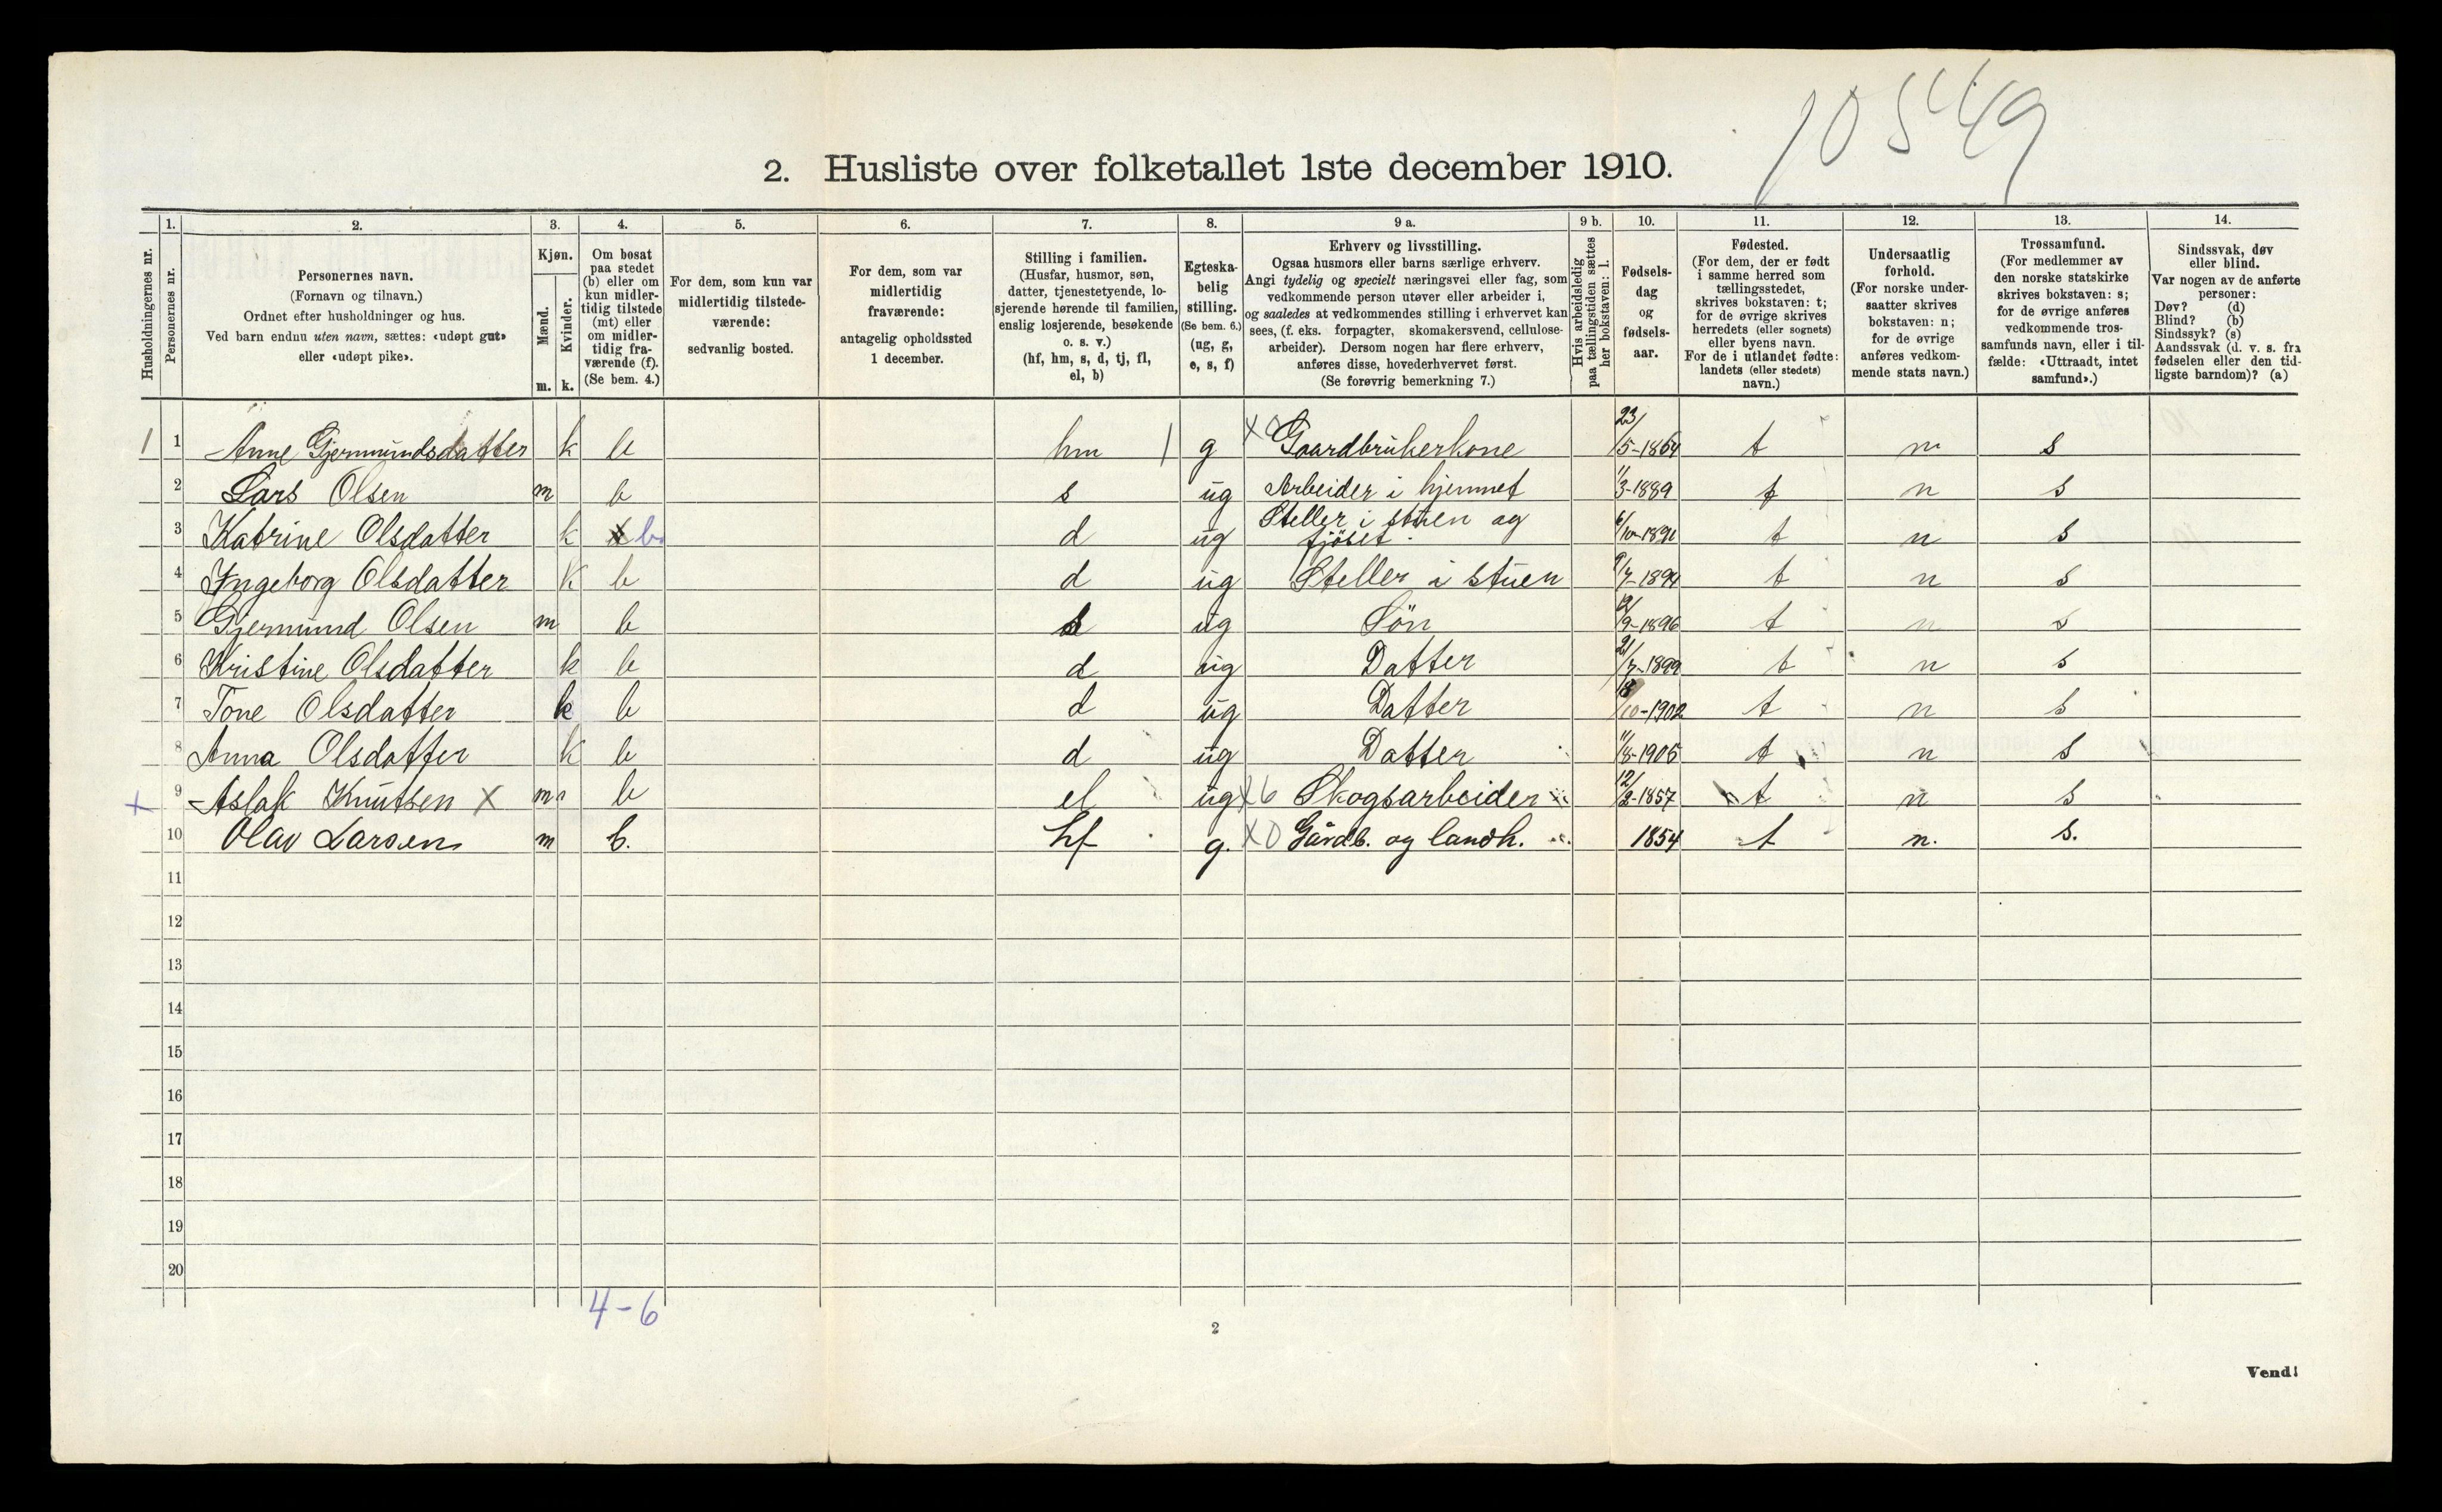 10549
2. Husliste over folketallet 1ste december 1910.
Husholdningernes nr.
1.
Personernes nr.
2.
Personernes navn.
(Fornavn og tilnavn.)
Ordnet efter husholdninger og hus.
Ved barn endnu uten navn, sættes: «udøpt gut»
eller «udøpt pike».
3.
Kjøn.
Mænd.
Kvinder.
m. k.
4.
Om bosat
paa stedet
(b) eller om
kun midler-
tidig tilstede
(mt) eller
om midler-
tidig fra-
værende (f).
(Se bem. 4.)
5.
For dem, som kun var
midlertidig tilstede-
værende:
sedvanlig bosted.
6.
For dem, som var
midlertidig
fraværende:
antagelig opholdssted
1 december.
7.
Stilling i familien.
(Husfar, husmor, søn,
datter, tjenestetyende, lo-
sjerende hørende til familien,
enslig losjerende, besøkende
o. s. v.)
(hf, hm, s, d, tj, fl,
el, b)
8.
Egteska-
belig
stilling.
(Se bem. 6.)
(ug, g,
e, s, f)
9 a.
Erhverv og livsstilling.
Ogsaa husmors eller barns særlige erhverv.
Angi tydelig og specielt næringsvei eller fag, som
vedkommende person utøver eller arbeider i,
og saaledes at vedkommendes stilling i erhvervet kan
sees, (f. eks. forpagter, skomakersvend, cellulose-
arbeider). Dersom nogen har flere erhverv,
anføres disse, hovederhvervet først.
(Se forøvrig bemerkning 7.)
9 b.
Hvis arbeidsledig
paa tællingstiden sættes
her bokstaven: l.
10.
Fødsels-
dag
og
fødsels-
aar.
11.
Fødested.
(For dem, der er født
i samme herred som
tællingsstedet,
skrives bokstaven: t;
for de øvrige skrives
herredets (eller sognets)
eller byens navn.
For de i utlandet fødte:
landets (eller stedets)
navn.)
12.
Undersaatlig
forhold.
(For norske under-
saatter skrives
bokstaven: n;
for de øvrige
anføres vedkom-
mende stats navn.)
13.
Trossamfund.
(For medlemmer av
den norske statskirke
skrives bokstaven: s;
for de øvrige anføres
vedkommende tros-
samfunds navn, eller i til-
fælde: «Uttraadt, intet
samfund».)
14.
Sindssvak, døv
eller blind.
Var nogen av de anførte
personer:
Døv? (d)
Blind? (b)
Sindssyk? (s)
Aandssvak (d. v. s. fra
fødselen eller den tid-
ligste barndom)? (a)
1 1 Anne Gjermundsdatter k b hm 1 g X0 Gaardbrukerkone 23/5-1864 t n s
2 Lars Olsen m b s ug Arbeider i hjemmet 11/3-1889 t n s
3 Katrine Olsdatter k x b d ug Steller i stuen og fjöset. 6/10-1891 t n s
4 Ingeborg Olsdatter k b d ug Steller i stuen 9/7-1894 t n s
5 Gjermund Olsen m b s ug Sön /9-1896 t n s
6 Kristine Olsdatter k b d ug Datter 21/7-1899 t n s
7 Tone Olsdatter k b d ug Datter 18/10-1902 t n s
8 Anna Olsdatter k b d ug Datter 11/8-1905 t n s
x 9 Aslak Knutsen X m b el ug X6 Skogsarbeider 12/2-1857 t n s
10 Olav Larsen m b. hf g. X0 Gårdb. og landh. 1854 t n. s.
11
12
13
14
15
16
17
18
19
20
4-6
2
Vend!